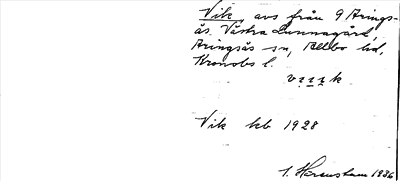 Vik, avs från 9 Arings-
ås Västra Lunnagård,
Aringsås sn, Allbo hd,
Kronobs l.
v i i k
Vik kb 1928
1936